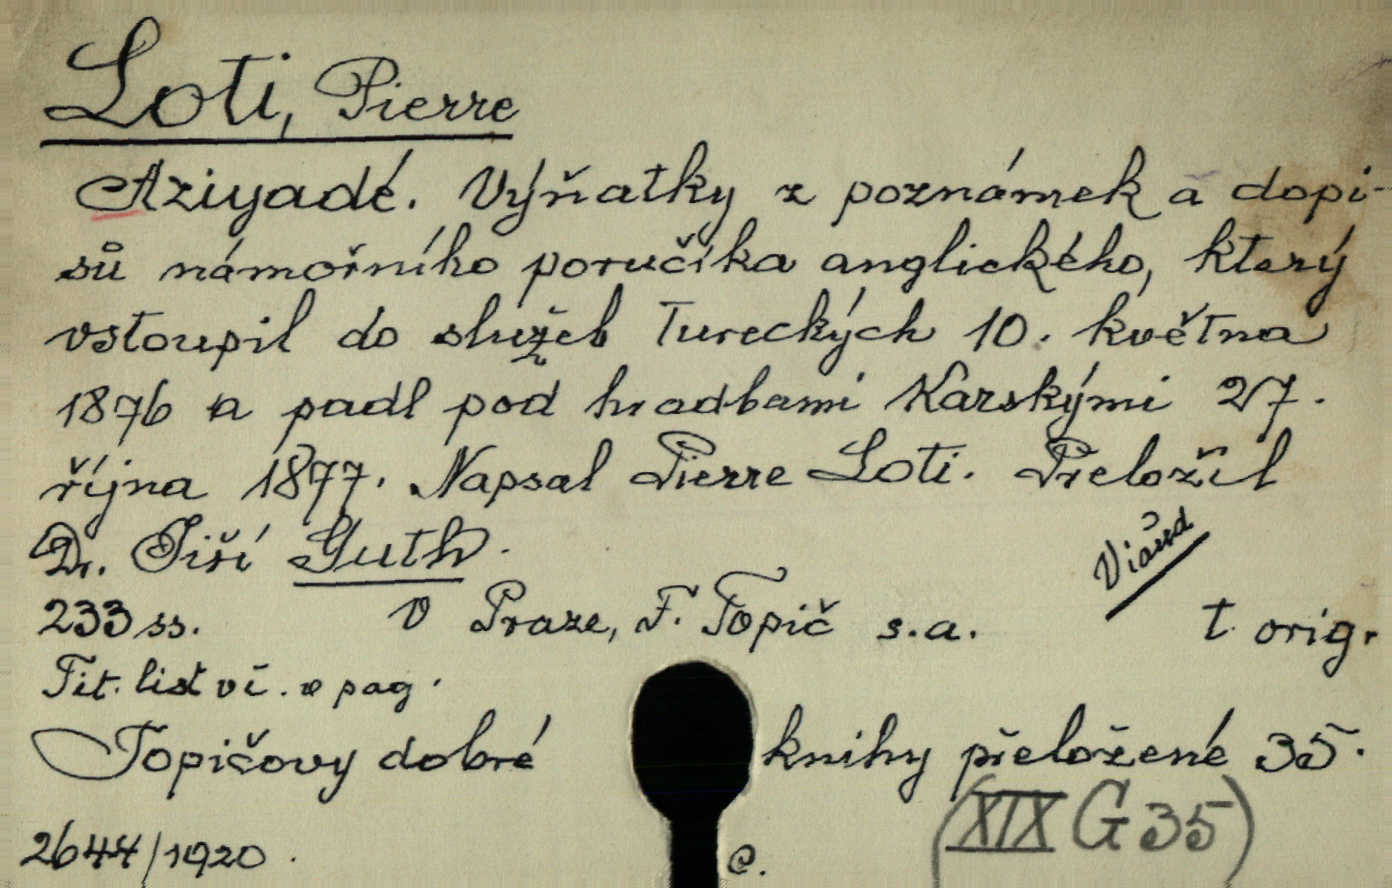 Loti, Pierre
Aziyadé. Výňatky z poznámek a dopi-
sů námořního poručíka anglického, který
vstoupil do služeb tureckých 10. května
1876 a padl pod hradbami Karskými 27.
října 1877. Napsal Pierre Loti. Preložil
Dr. Jiří Guth.
Viaud
233 ss. V Praze, F. Topič s.a. t. orig.
Tit. list vč. v pag.
Topičovy dobré knihy přeložené 35.
(XIX G 35)
2644/1920.